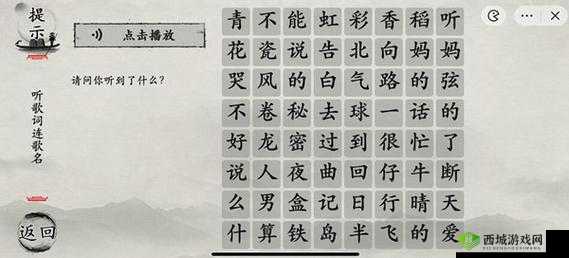 提示
点击播放
请问你听到了什么？
听歌词连歌名
返回
青不能虹彩香稻听
花瓷说告北向妈妈
哭风的白气路的弦
不卷秘去球一话的
好龙密过到很忙了
说人夜曲回仔牛断
么男盒记日行晴天
什算铁岛半飞的爱
西城游戏网